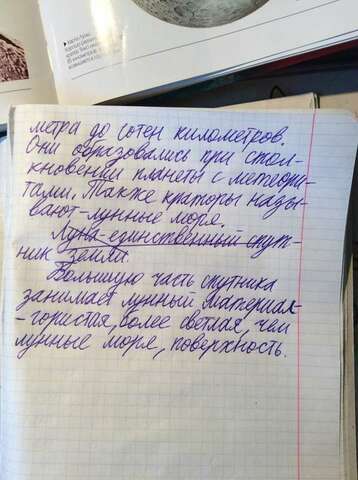 метра до сотен километров.
Они образовались при стол-
кновении планеты с метеори-
тами. Также кратеры назы-
вают-лунные моря.
Луна-единственный спут-
ник земли.
Большую часть спутника
занимает лунный материал-
-гористая, более светлая, чем
лунные моря, поверхность.